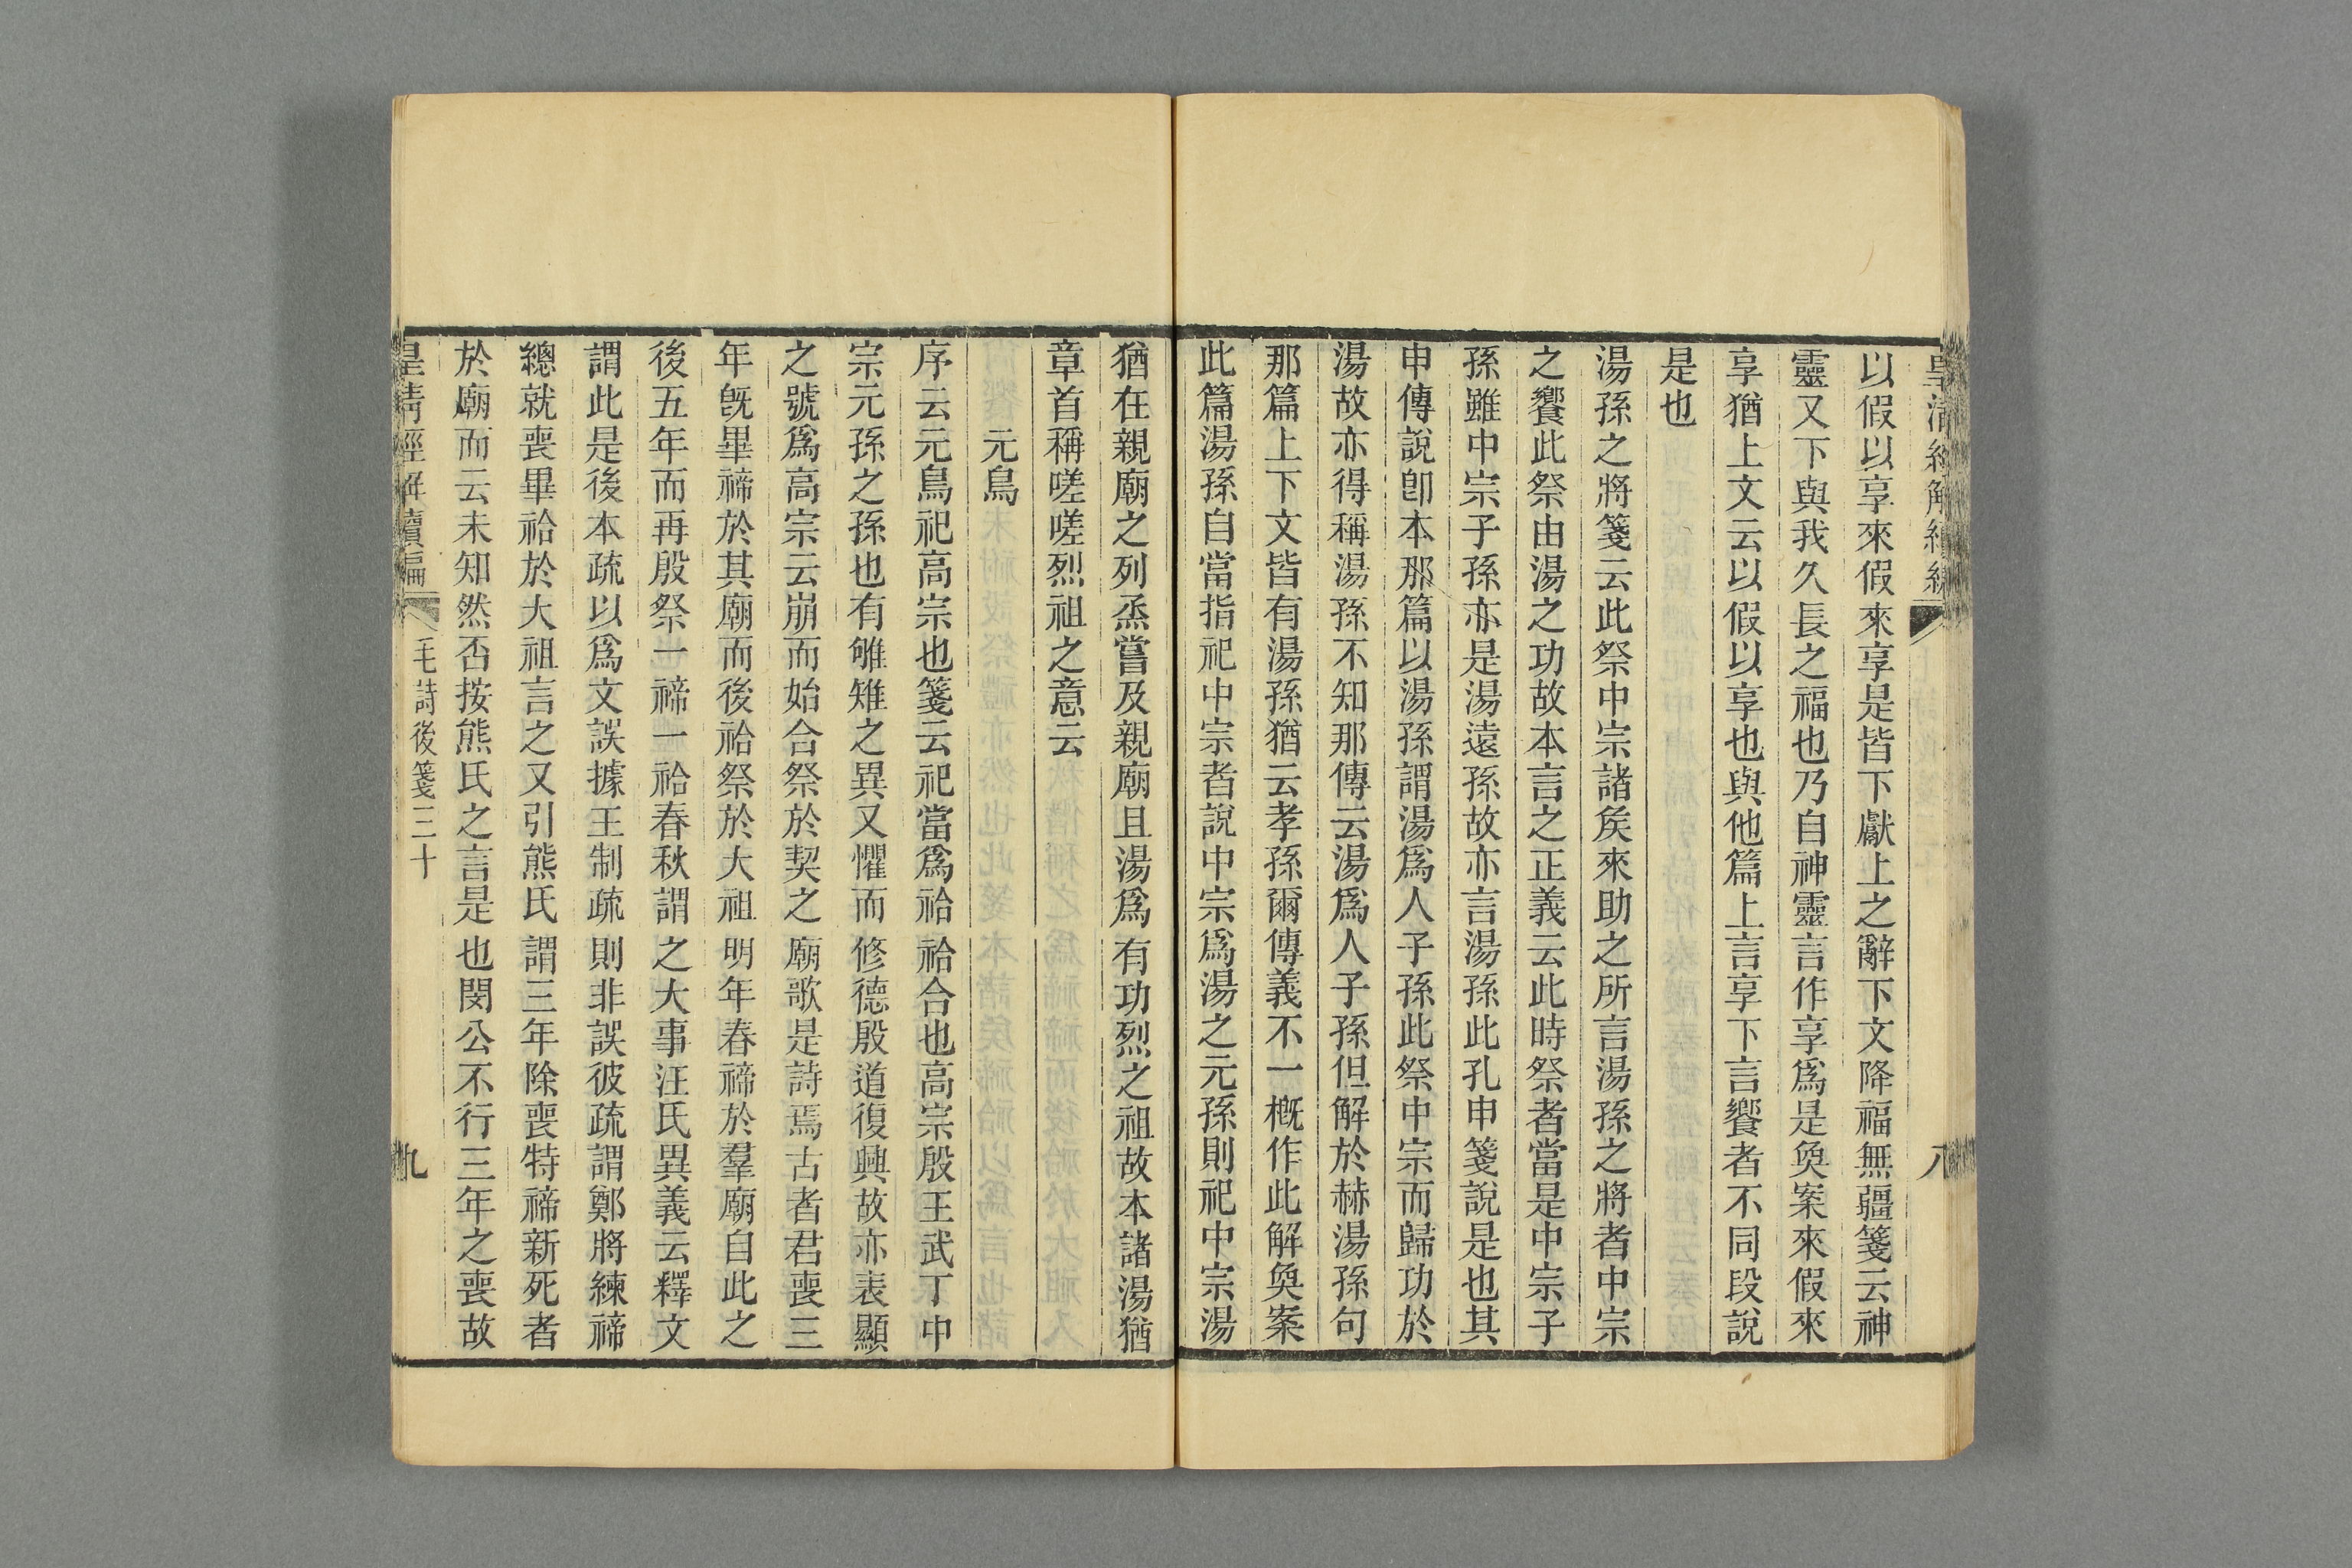 以假以享來假來享是皆下獻上之辭下文降福無疆箋云神
靈又下與我久長之福也乃自神靈言作享爲是奐案來假來
享猶上文云以假以享也與他篇上言享下言饗者不同段說
是也
湯孫之將箋云此祭中宗諸矦來助之所言湯孫之將者中宗
之饗此祭由湯之功故本言之正義云此時祭者當是中宗子
孫雖中宗子孫亦是湯遠孫故亦言湯孫此孔申箋說是也其
申傳說卽本那篇以湯孫謂湯爲人子孫此祭中宗而歸功於
湯故亦得稱湯孫不知那傳云湯爲人子孫但解於赫湯孫句
那篇上下文皆有湯孫猶云孝孫爾傳義不一槪作此解奐案
此篇湯孫自當指祀中宗者說中宗爲湯之元孫則祀中宗湯
猶在親廟之列烝嘗及親廟且湯爲有功烈之祖故本諸湯猶
章首稱嗟嗟烈祖之意云
元鳥
序云元鳥祀高宗也箋云祀當爲祫祫合也高宗殷王武丁中
宗元孫之孫也有雊雉之異又懼而修德殷道復興故亦表顯
之號爲高宗云崩而始合祭於契之廟歌是詩焉古者君喪三
年旣畢禘於其廟而後祫祭於大祖明年春禘於羣廟自此之
後五年而再殷祭一禘一祫春秋謂之大事汪氏異義云釋文
謂此是後本疏以爲文誤據王制疏則非誤彼疏謂鄭將練禘
總就喪畢祫於大祖言之又引熊氏謂三年除喪特禘新死者
於廟而云未知然否按熊氏之言是也閔公不行三年之喪故
皇清經解續編
毛詩後箋三十
九